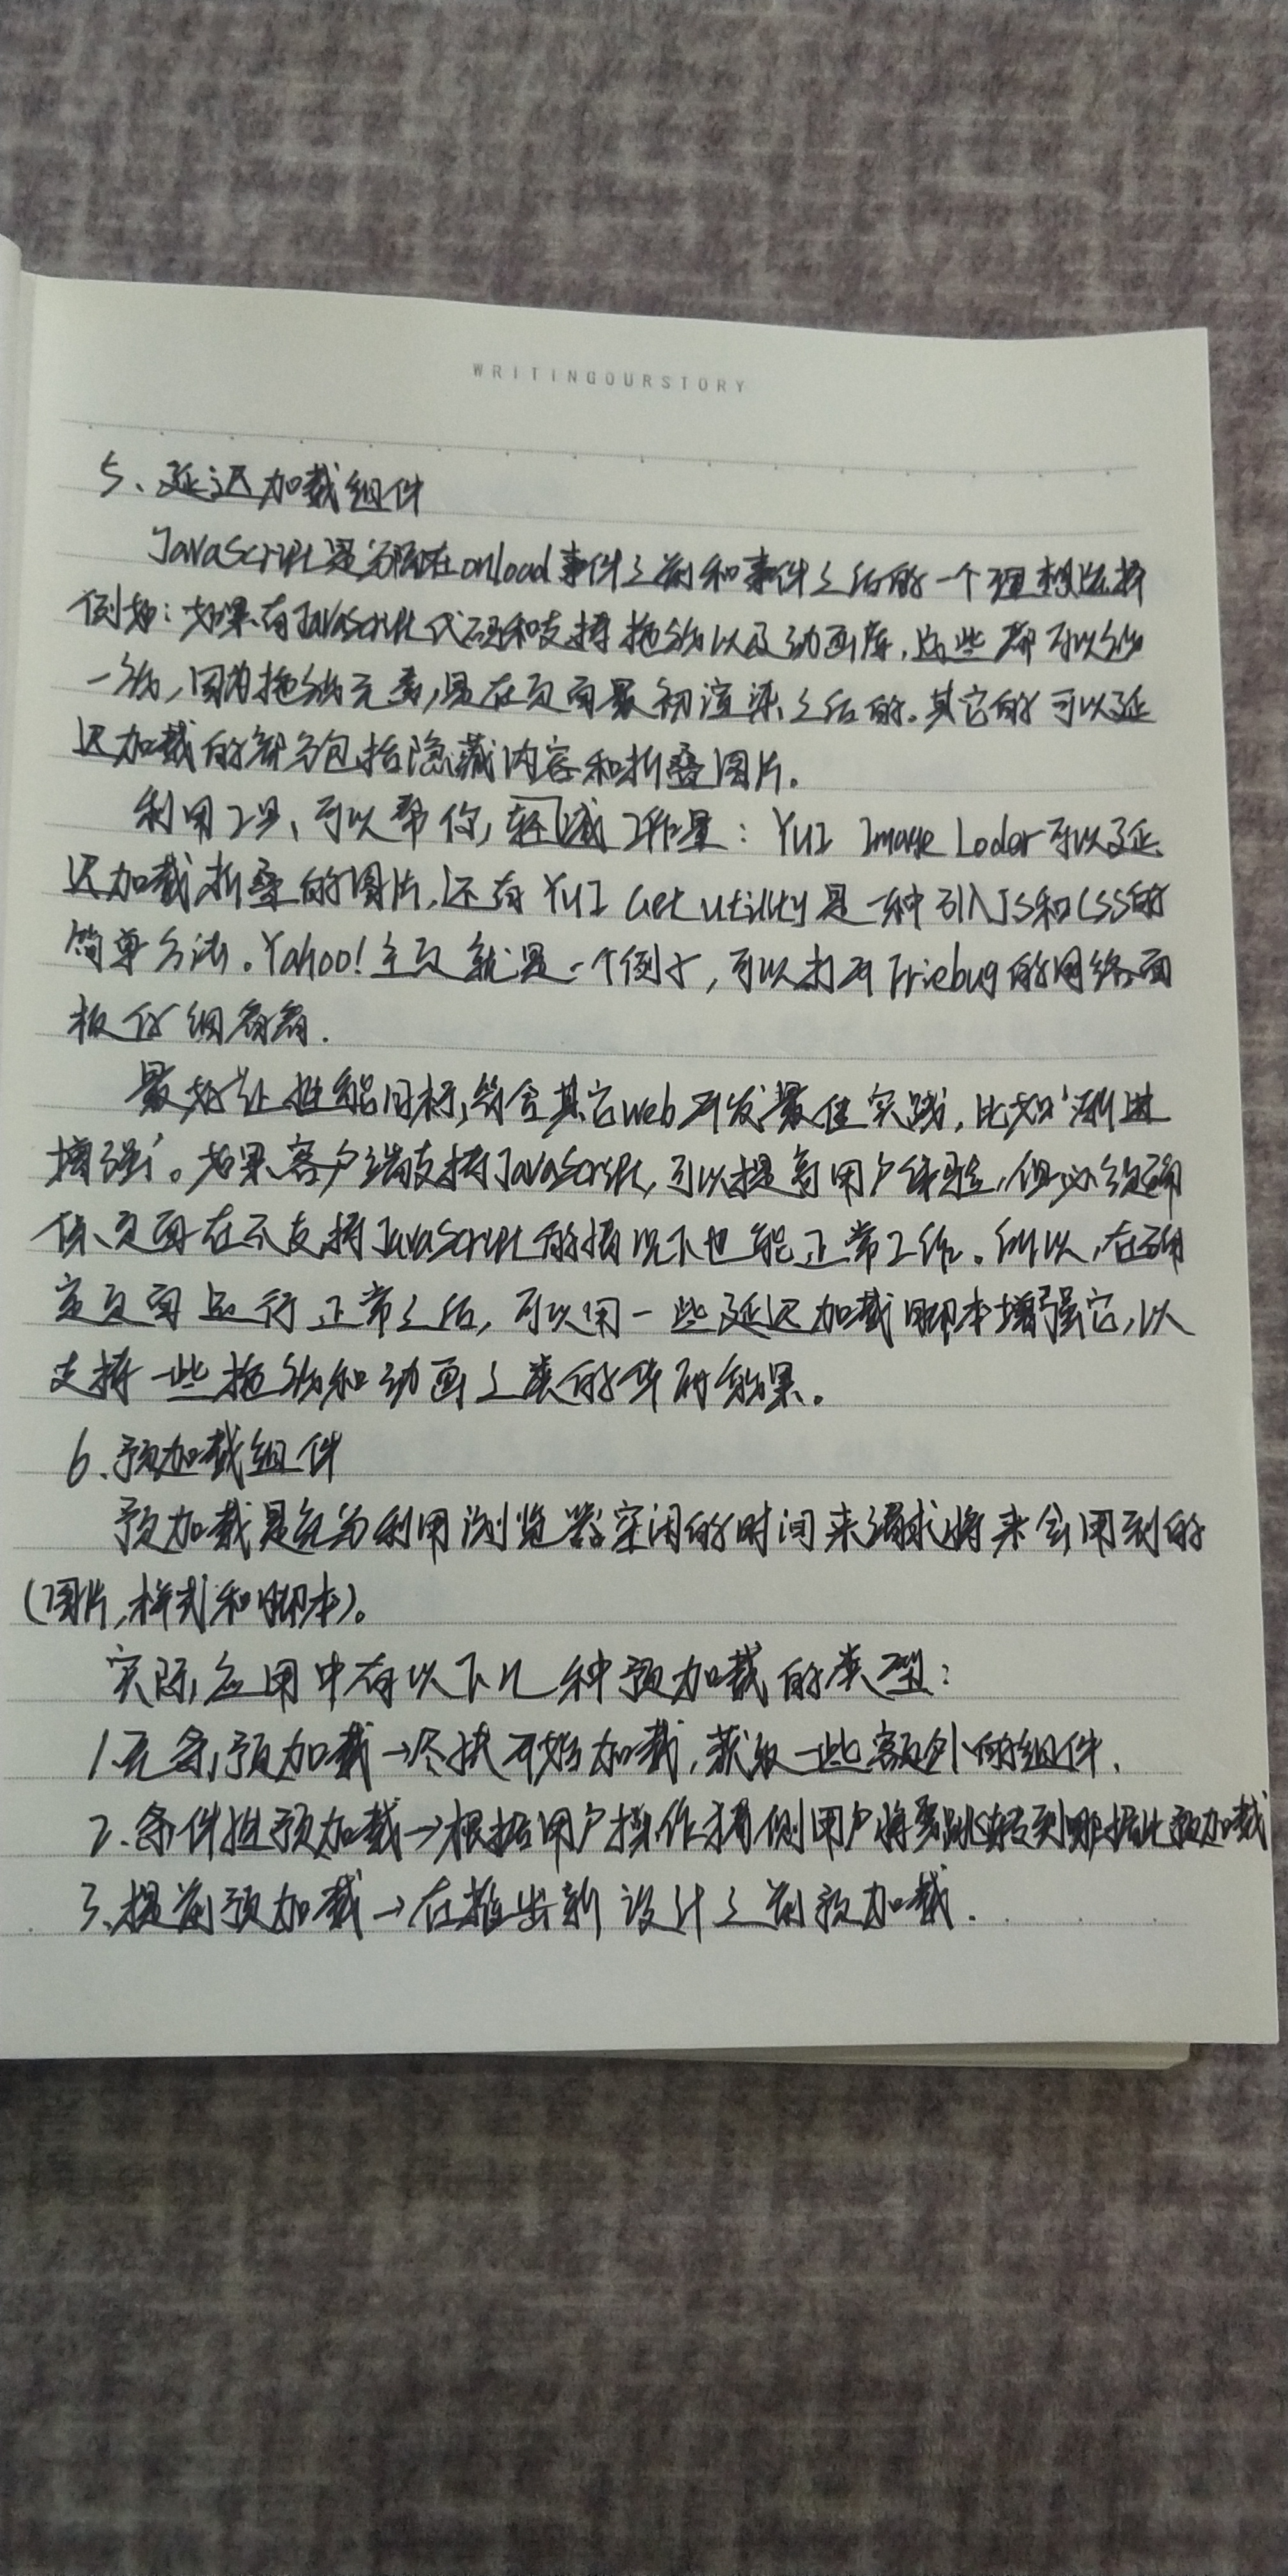 WRITINGOURSTORY
5、延迟加载组件
JavaScript是分隔在onload事件之前和事件之后的一个理想选择
例如：如果有JavaScript代码和支持拖放以及动画库，这些都可以放
一放，因为拖放元素，是在页面最初渲染之后的。其它的可以延
迟加载的部分包括隐藏内容和折叠图片。
利用工具、可以帮你，轻减工作量：YUI Image Loder可以延
迟加载折叠的图片，还有YUI Get utility是一种引入JS和CSS的
简单方法。Yahoo!主页就是一个例子，可以打开Friebug的网络面
板仔细看看.
最好让性能目标，符合其它web开发最佳实践，比如'渐进
增强'。如果客户端支持JavaScript，可以提高用户体验，但必须确
保、页面在不支持JavaScript的情况下也能正常工作。所以，在确
定页面运行正常之后，可以用一些延迟加载脚本增强它，以
支持一些拖放和动画之类的华丽效果。
6、预加载组件
预加载是充分利用浏览器空闲的时间来请求将来会用到的
(图片，样式和脚本)。
实际应用中有以下几种预加载的类型：
1.无条件预加载→尽快开始加载，获取一些额外的组件.
2.条件性预加载→根据用户操作猜测用户将要跳转到哪据此预加载
3、提前预加载→在推出新设计之前预加载.